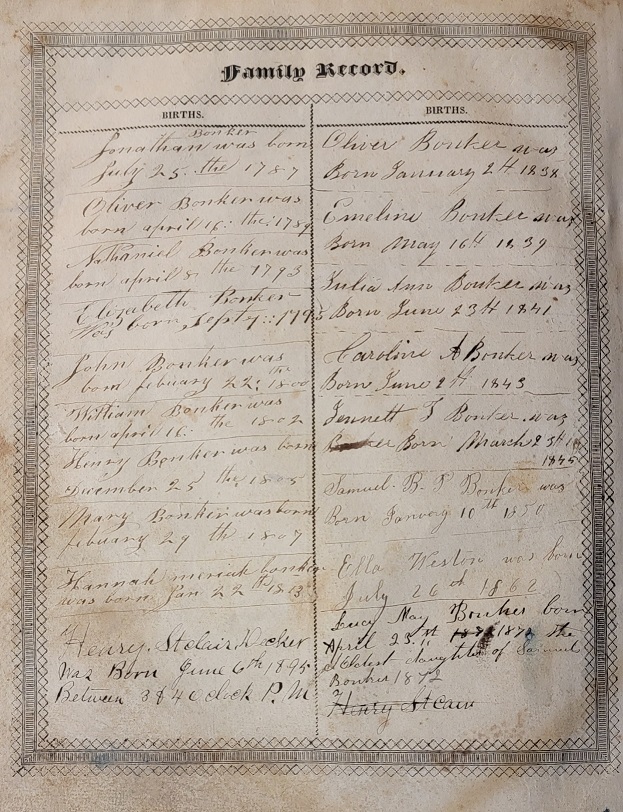 Family Record.
BIRTHS.
Bonker
Jonathan was born
July 25. the 1787
Oliver Bonker was
born april 16: the: 1789
Nathaniel Bonker was
born april 8 the 1793
Elizabeth Bonker
Was born Sept 7:: 1795
John Bonker was
born febuary 22: the 1800
William Bonker was
born april 16: the 1802
Henry Bonker was born
December 25 the 1805
Mary Bonker was born
febuary 29 th 1807
Hannah meriah bonker
was born Jan 22 th 1813
Henry. St clair Kocker
Was Born June 6th 1895
Between 3 & 4 O clock P. M
BIRTHS.
Oliver Bonker was
Born January 24 1838
Emeline Bonker was
Born May 16th 1839
Julia Ann Bonker was
Born June 23th 1841
Caroline A Bonker was
Born June 2th 1843
Jennett T Bonker was
Born March 25th
1845
Samuel. B. T Bonker was
Born Janvery 10th 1850
Ella Weston was born
July 26 1862
Lucy May Bonker born
April 23.st 1872 the
eldest daughter of Samuel
Bonker 1872
Henry St Cair